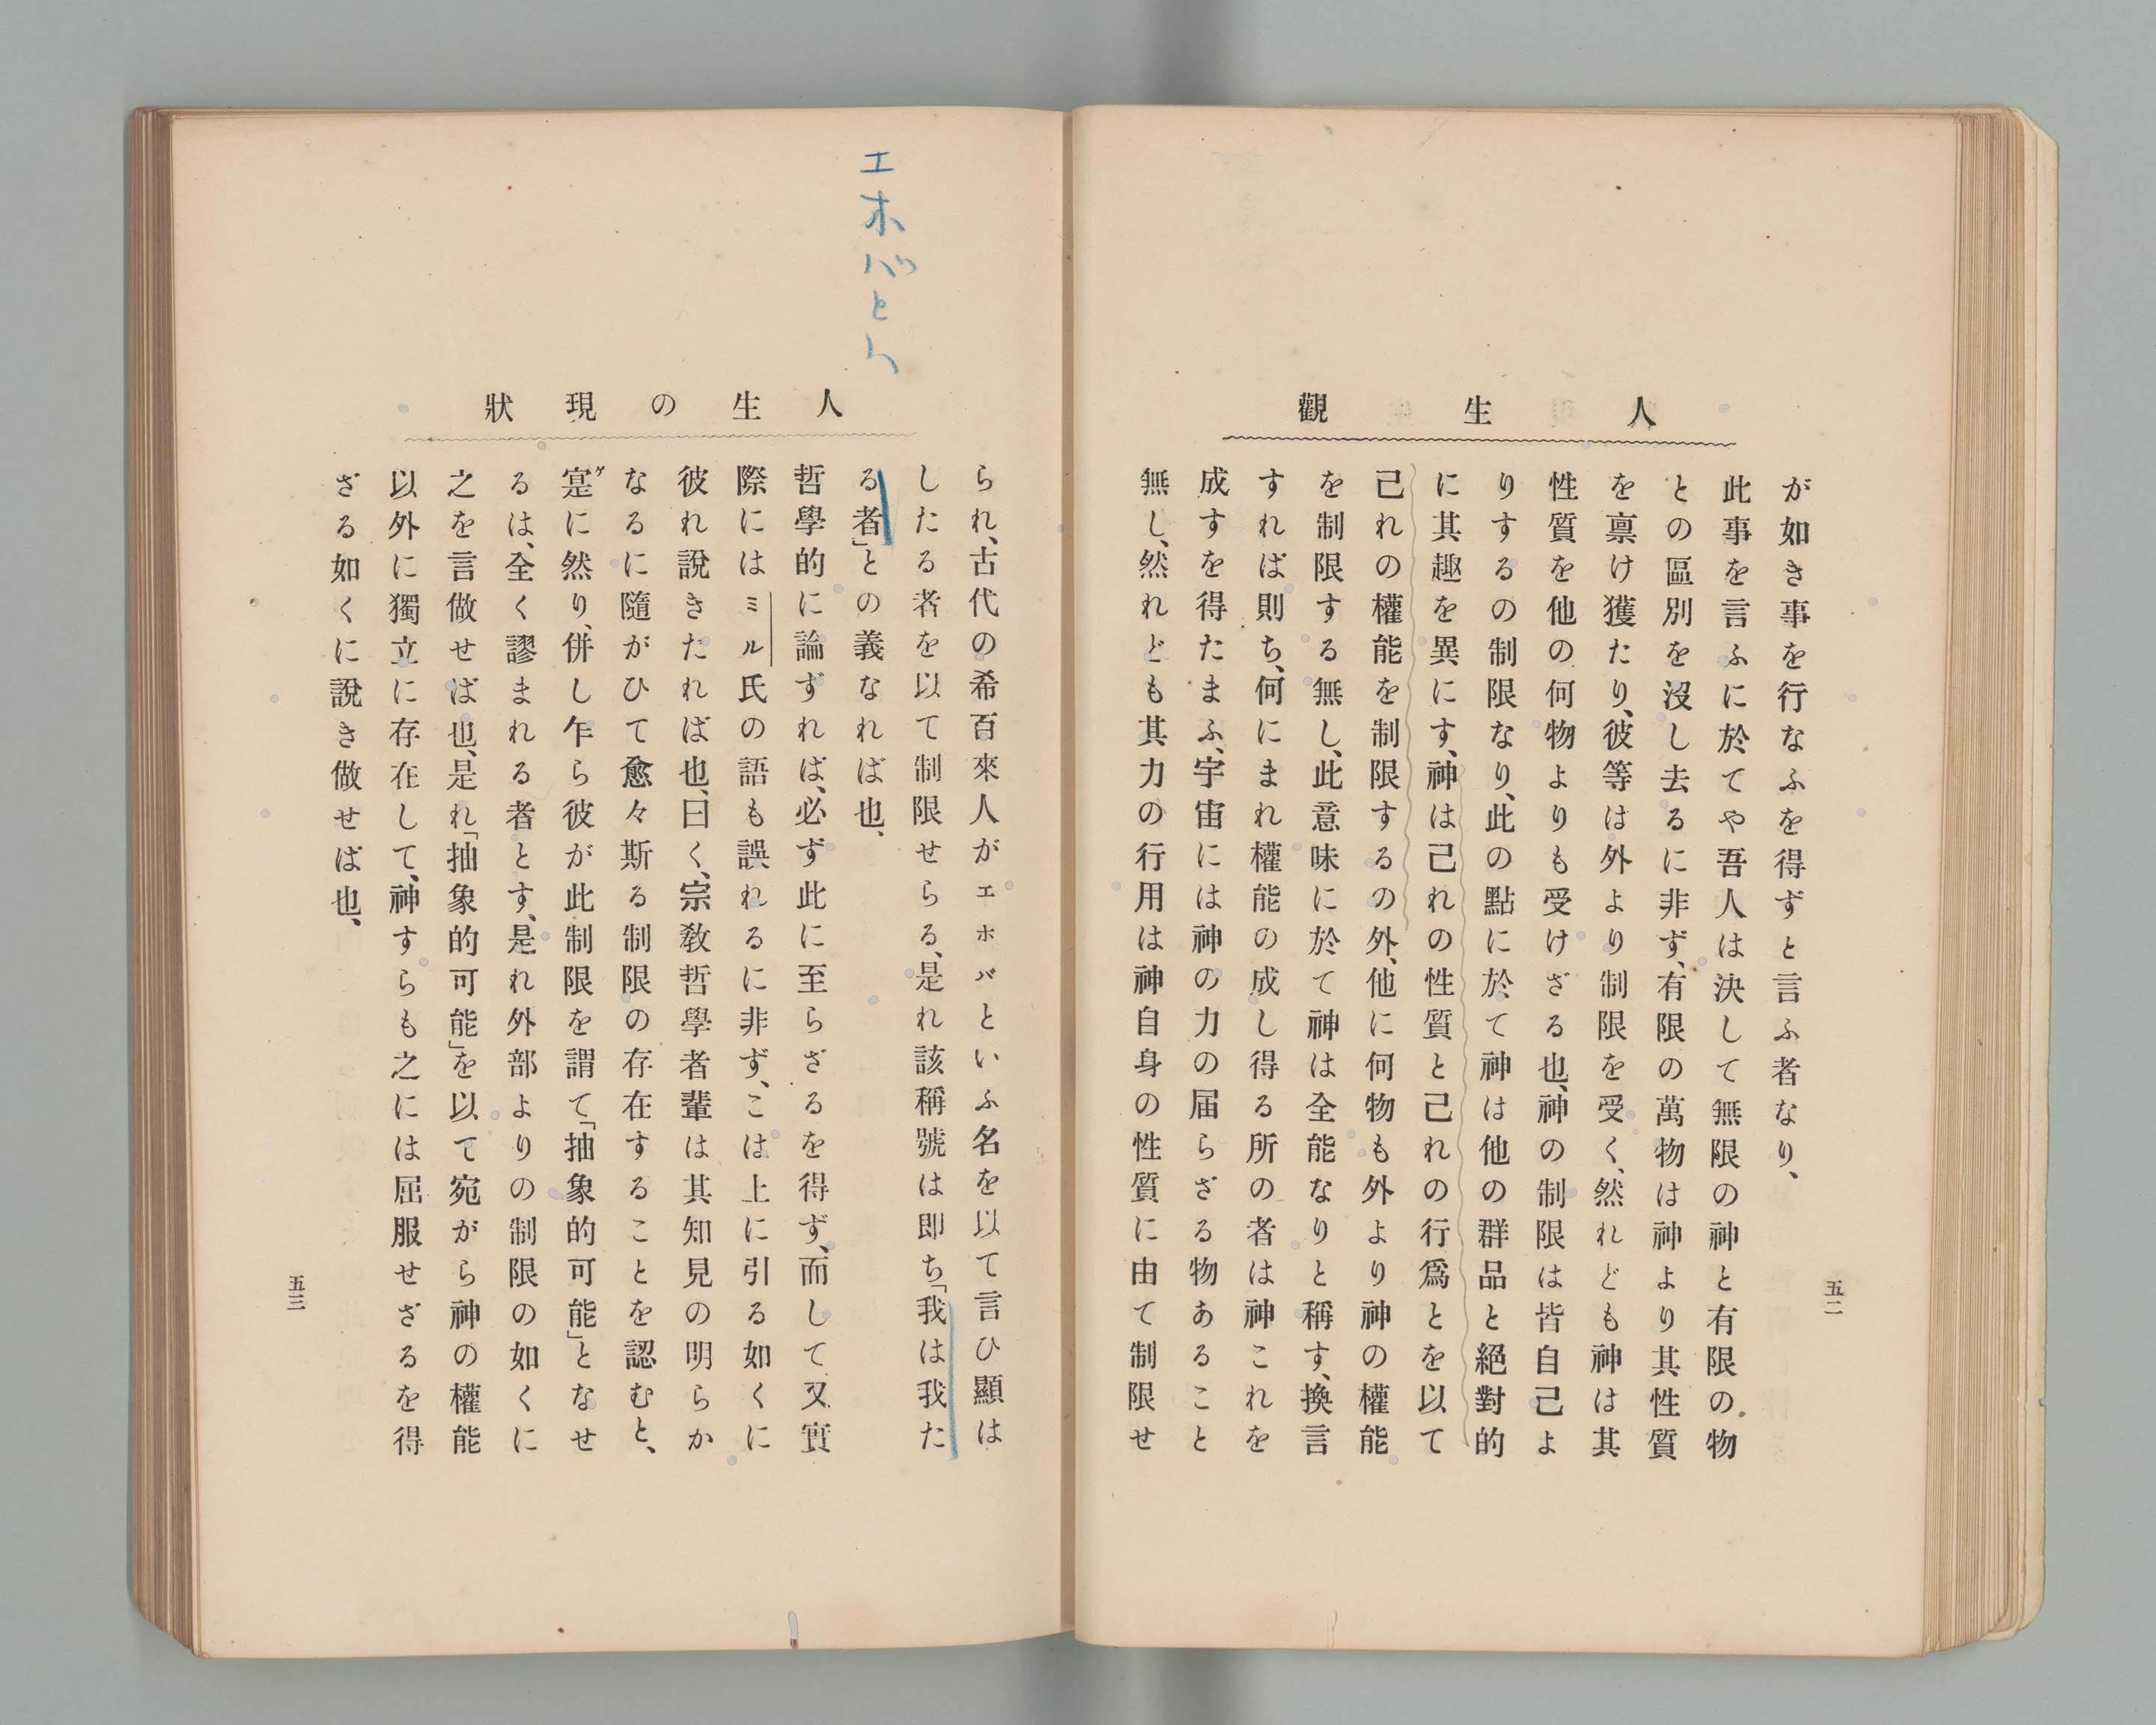 人生觀
が如き事を行なふを得ずと言ふ者なり、
此事を言ふに於てや吾人は決して無限の神と有限の物
との區別を沒し去るに非ず、有限の萬物は神より其性質
を禀け獲たり、彼等は外より制限を受く、然れども神は其
性質を他の何物よりも受けざる也、神の制限は皆自己よ
りするの制限なり、此の點に於て神は他の群品と絕對的
に其趣を異にす、神は己れの性質と己れの行爲とを以て
己れの權能を制限するの外、他に何物も外より神の權能
を制限する無し、此意味に於て神は全能なりと稱す、換言
すれば則ち、何にまれ權能の成し得る所の者は神これを
成すを得たまふ、宇宙には神の力の届らざる物あること
無し、然れども其力の行用は神自身の性質に由て制限せ
五二
エホバとハ
人生の現狀
られ、古代の希百來人がエホバといふ名を以て言ひ顯は
したる者を以て制限せらる、是れ該稱號は即ち「我は我た
る者」との義なれば也、
哲學的に論ずれば、必ず此に至らざるを得ず、而して又實
際にはミル氏の語も誤れるに非ず、こは上に引る如くに
彼れ說きたれば也、曰く、宗敎哲學者輩は其知見の明らか
なるに隨がひて愈々斯る制限の存在することを認むと、
寔ゲに然り、併し乍ら彼が此制限を謂て「抽象的可能」となせ
るは、全く謬まれる者とす、是れ外部よりの制限の如くに
之を言做せば也、是れ「抽象的可能」を以て宛がら神の權能
以外に獨立に存在して、神すらも之には屈服せざるを得
ざる如くに說き做せば也、
五三